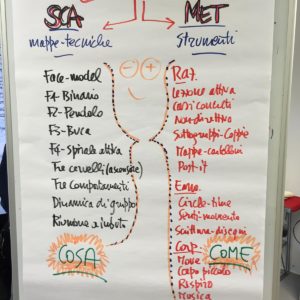 SCA
MET
mappe-tecniche
Strumenti
Face-model
F1-Binario
F2-Pendolo
F3-Buca
F4-Spirale attiva
Tre cervelli (ascensore)
Tre comportamenti
Dinamica di gruppo
Riunione
COSA
Raz.
Lezione attiva
Casi concreti
Non-direttivo
Sottogruppi-Coppie
Mappe-cartelloni
Post-it
Emo.
Circle-time
Senti-movimento
Scritture-disegni
Corp.
Move
Capo piccolo
Respiro
Musica
COME